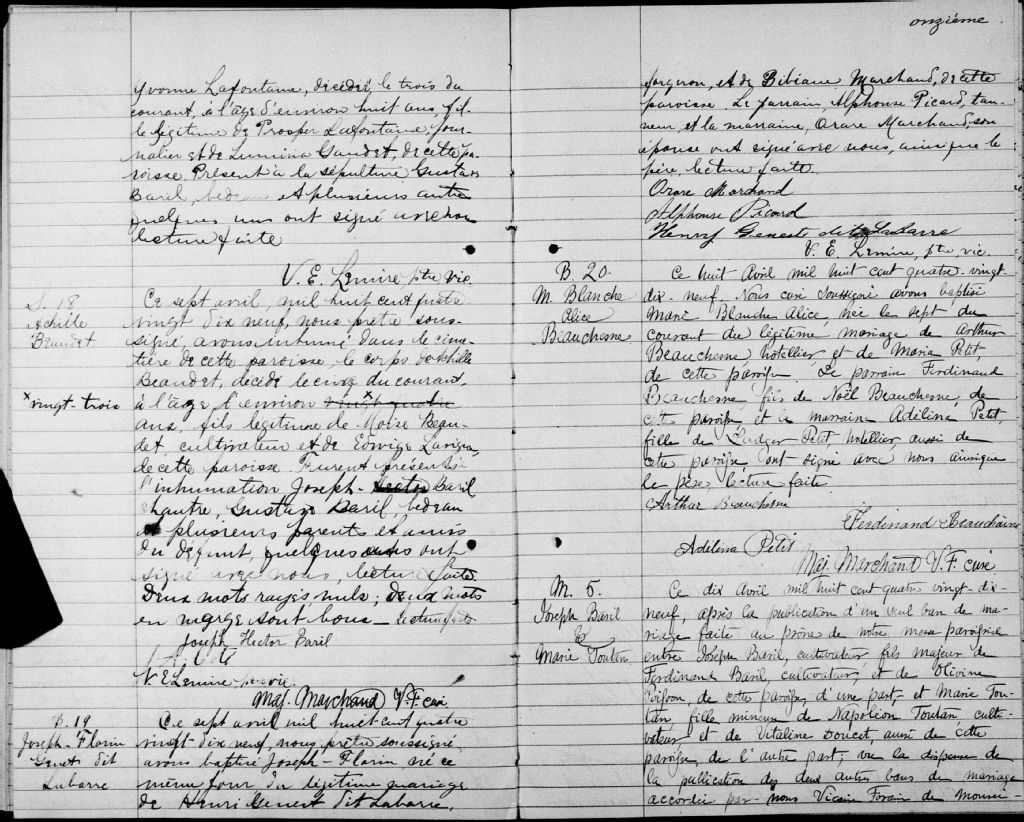 Yvonne Lafontaine, décédée le trois du
courant, à l'âge d'environ huit ans, fil-
le légitime de Prosper Lafontaine jour-
nalier et de Luminia Gaudet, de cette pa-
roisse. Présent à la sépulture Gustave
Baril, bedeau et plusieurs autres
quelques uns ont signé avec nous
lecture faite
V. E. Lemire, ptre vic.
S. 18
Achille
Beaudet
Ce sept avril, mil huit cent quatre
vingt dix neuf, nous prêtre sous-
signé, avons inhumé dans le cime-
tière de cette paroisse, le corps d'Achille
Beaudet, décédé le cinq du courant,
x vingt-trois
à l'âge d'environ vingt quatre x
ans, fils légitime de Moïse Beau-
det, cultivateur et de Edwige Lavigne,
de cette paroisse. Furent présents à
l'inhumation Joseph- Hector Baril
chantre, Gustave Baril, bedeau
et plusieurs parents et amis
du défunt, quelques uns ont
signé avec nous, lecture faite.
Deux mots rayés, nuls; deux mots
en marge sont bons - lecture faite
Joseph Hector Baril
V. E Lemire ptre vic.
Maj. Marchand V. F. curé
B. 19
Joseph-Florin
Genest dit
Labarre
Ce sept avril mil huit cent quatre
vingt-dix neuf, nous prêtre soussigné,
avons baptisé Joseph-Florin, né ce
même jour du légitime mariage
de Henri Genest dit Labarre,
onzième.
forgeron, et de Bibiane Marchand, de cette
paroisse. Le parrain, Alphonse Picard, tan-
neur, et la marraine, Orare Marchand, son
épouse ont signé avec nous, ainsi que le
père, lecture faite.
Orare Marchand
Alphonse Picard
Henry Geneste dit Labarre
V. E. Lemire, ptre vic.
B. 20.
M. Blanche
Alice
Beauchesne
Ce huit Avril mil huit cent quatre-vingt-
dix-neuf. Nous curé soussigné avons baptisé
Marie Blanche Alice, née le sept du
courant du légitime mariage de Arthur
Beauchesne hotellier et de Maria Petit,
de cette paroisse. Le parrain Ferdinand
Beauchesne, fils de Noël Beauchesne, de
cette paroisse et la marraine Adélina Petit,
fille de Ludger Petit hotellier, aussi de
cette paroisse, ont signé avec nous ainsi que
le père, lecture faite.
Arthur Beauchesne
Ferdinand Beauchaine
Adélina Petit
Maj. Marchand V. F. curé
M. 5.
Joseph Baril
&
Marie Toutan
Ce dix Avril mil huit cent quatre vingt-dix-
neuf, après la publication d'un seul ban de ma-
riage faite au prône de notre messe paroissiale
entre Joseph Baril, cultivateur, fils majeur de
Ferdinand Baril, cultivateur, et de Olivine
Poisson, de cette paroisse, d'une part, et Marie Tou-
tan, fille mineure de Napoléon Toutan, culti-
vateur et de Vitaline Doucet, aussi de cette
paroisse, de l'autre part; vu la dispense de
la publication des deux autres bans de mariage
accordée par nous Vicaire Forain de Monsei-